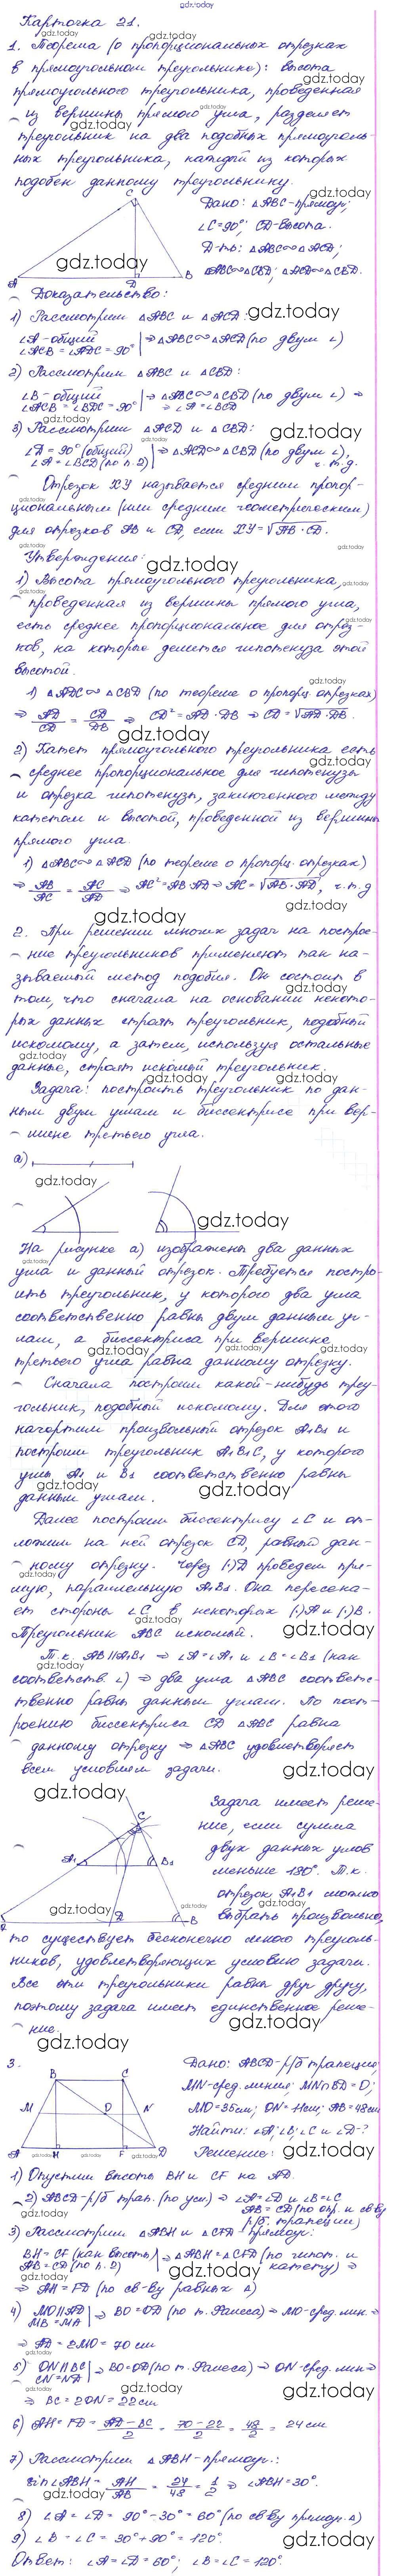 gdz.today
Карточка 21.
1. Теорема (о пропорциональных отрезках
в прямоугольном треугольнике): высота
прямоугольного треугольника, проведенная
из вершины прямого угла, разделяет
треугольник на два подобных прямоуголь-
ных треугольника, каждый из которых
подобен данному треугольнику.
Дано: △ABC-прямоуг;
∠C=90°; CD-высота.
Д-ть: △ABC∾△ACD;
△ABC∾△CBD; △ACD∾△CBD.
Доказательство:
1) Рассмотрим △ABC и △ACD:
∠A-общий
∠ACB=∠ADC=90° |⇒△ABC∾△ACD (по двум ∠)
2) Рассмотрим △ABC и △CBD:
∠B-общий |⇒ △ABC∾△CBD (по двум ∠) ⇒
∠ACB=∠BDC=90° ⇒ ∠A=∠BCD
3) Рассмотрим △ACD и △CBD:
∠D=90° (общий) |⇒ △ACD∾△CBD (по двум ∠),
∠A=∠BCD (по п.2) ч.т.д.
Отрезок XY называется средним пропор-
циональным (или средним геометрическим)
для отрезков AB и CD, если XY=√AB·CD.
Утверждения:
1) Высота прямоугольного треугольника,
проведенная из вершины прямого угла,
есть среднее пропорциональное для отрез-
ков, на которые делится гипотенуза этой
высотой.
1) △ADC∾△CBD (по теореме о пропорц. отрезках)
⇒ AD/CD = CD/DB ⇒ CD²=AD·DB ⇒ CD=√AD·DB.
2) Катет прямоугольного треугольника есть
среднее пропорциональное для гипотенузы
и отрезка гипотенузы, заключенного между
катетом и высотой, проведенной из вершины
прямого угла.
1) △ABC∾△ACD (по теореме о пропорц. отрезках)
⇒ AB/AC = AC/AD ⇒ AC²=AB·AD ⇒ AC=√AB·AD, ч.т.д
2. При решении многих задач на построе-
ние треугольников применяют так на-
зываемый метод подобия. Он состоит в
том, что сначала на основании некото-
рых данных строят треугольник, подобный
искомому, а затем, используя остальные
данные, строят искомый треугольник.
Задача: построить треугольник по дан-
ным двум углам и биссектрисе при вер-
шине третьего угла.
а)
На рисунке а) изображены два данных
угла и данный отрезок. Требуется постро-
ить треугольник, у которого два угла
соответственно равны двум данным уг-
лам, а биссектриса при вершине
третьего угла равна данному отрезку.
Сначала построим какой-нибудь треу-
гольник, подобный искомому. Для этого
начертим произвольный отрезок A1B1 и
построим треугольник A1B1C, у которого
углы A1 и B1 соответственно равны
данным углам.
Далее построим биссектрису ∠C и от-
ложим на ней отрезок CD, равный дан-
ному отрезку. Через (·)D проведем пря-
мую, параллельную A1B1. Она пересека-
ет стороны ∠C в некоторых (·)A и (·)B.
Треугольник ABC искомый.
Т.к. AB||A1B1 ⇒ ∠A=∠A1 и ∠B=∠B1 (как
соответств. ∠) ⇒ два угла △ABC соответс-
твенно равны данным углам. По пост-
роению биссектриса CD △ABC равна
данному отрезку ⇒ △ABC удовлетворяет
всем условиям задачи.
Задача имеет реше-
ние, если сумма
двух данных углов
меньше 180°. Т.к.
отрезок A1B1 можно
выбрать произвольно,
то существует бесконечно много треуголь-
ников, удовлетворяющих условию задачи.
Все эти треугольники равны друг другу,
поэтому задача имеет единственное реше-
ние.
3.
Дано: ABCD-р/б трапеция;
MN-сред. линия; MN∩BD=O;
MO=35см; ON=11см; AB=48см
Найти: ∠A; ∠B; ∠C и ∠D-?
Решение:
1) Опустим высоты BH и CF на AD.
2) ABCD-р/б трап. (по усл.) ⇒ ∠A=∠D и ∠B=∠C
AB=CD (по опр. и св-ву
р/б. трапеции)
3) Рассмотрим △ABH и △CFD - прямоуг.:
BH=CF (как высоты) |⇒ △ABH=△CFD (по гипот. и
AB=CD (по п.2) катету) ⇒
⇒ AH=FD (по св-ву равных △)
4) MO||AD
MB=MA |⇒ BO=OD (по т. Фалеса) ⇒ MO-сред. лин. ⇒
⇒ AD=2MO=70см
5) ON||BC
CN=ND |⇒ BO=OD (по т. Фалеса) ⇒ ON-сред. лин ⇒
⇒ BC=2ON=22см
6) AH=FD = AD-BC/2 = 70-22/2 = 48/2 = 24см
7) Рассмотрим △ABH-прямоуг.:
sin∠ABH = AH/AB = 24/48 = 1/2 ⇒ ∠ABH=30°.
8) ∠A=∠D=90°-30°=60° (по св-ву прямоуг. △)
9) ∠B=∠C=30°+90°=120°.
Ответ: ∠A=∠D=60°; ∠B=∠C=120°.